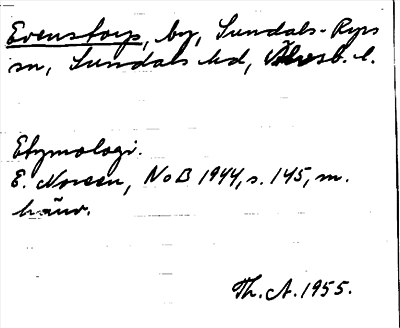 Evenstorp, by, Sundals-Ryrs
sn, Sundals hd, Älvsb. l.
Etymologi.
E. Noreen, NoB 1944, s. 145, m.
hänv.
Th. A. 1955.